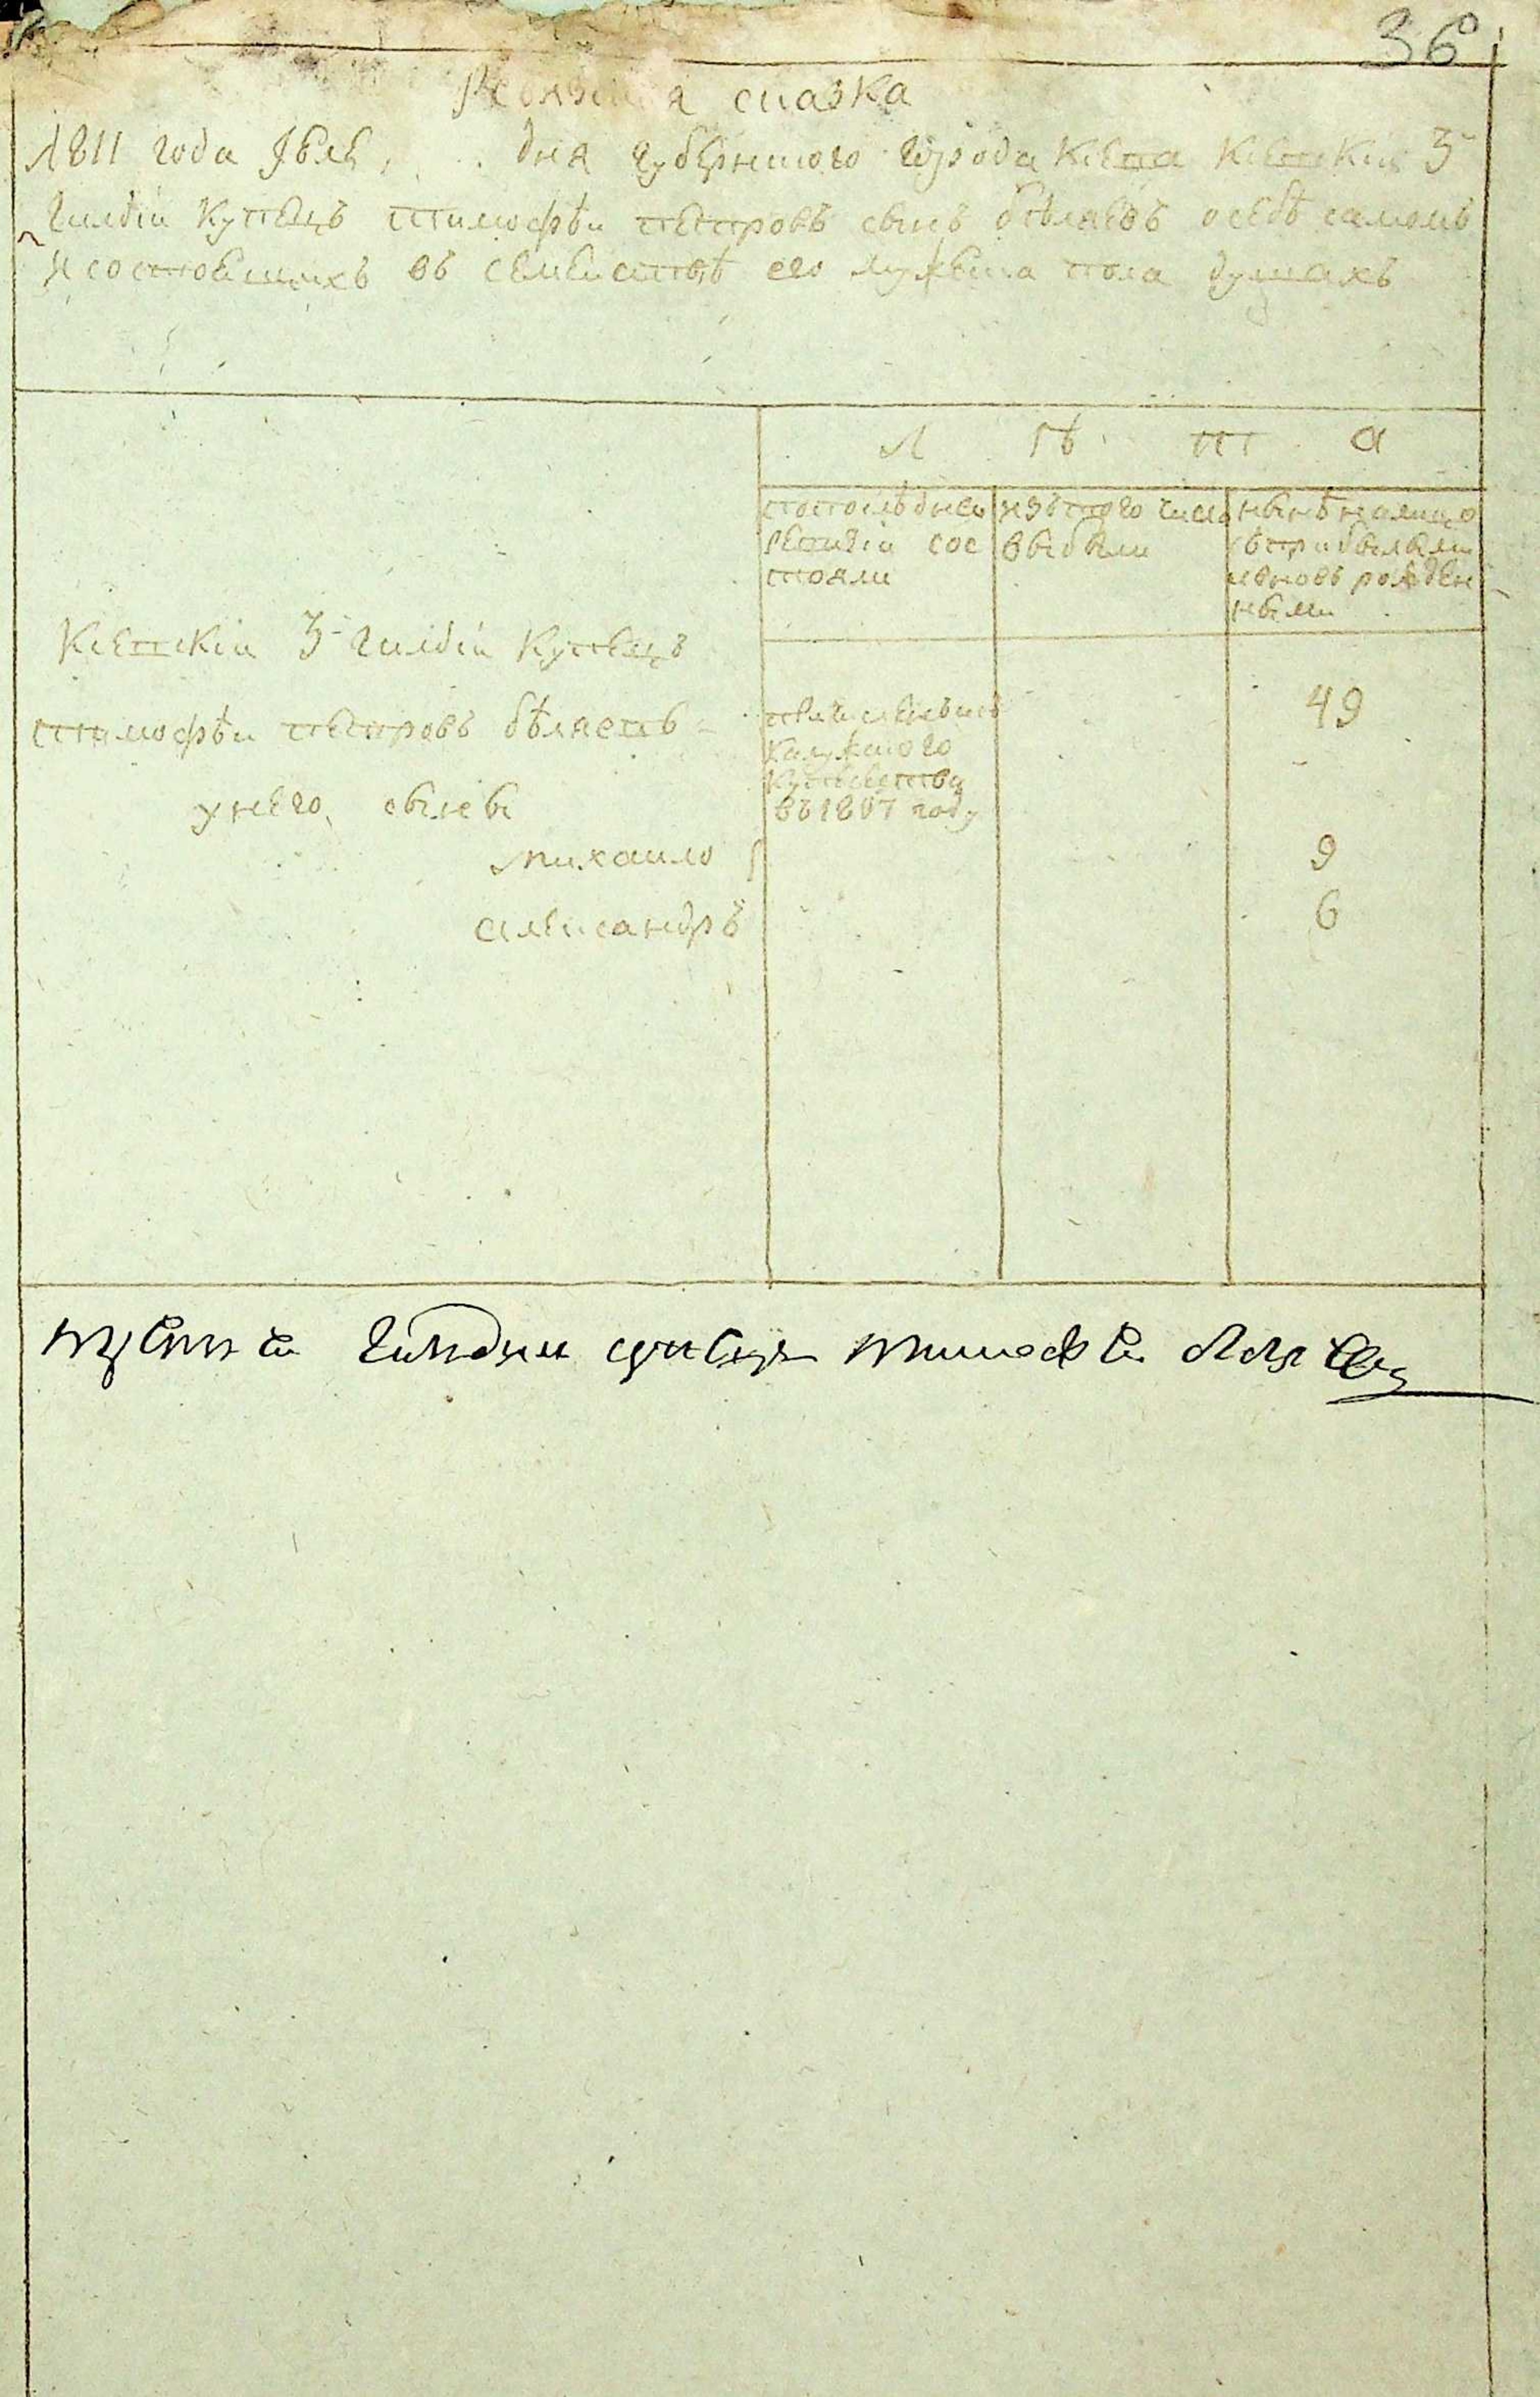 36
Ревизская сказка
1811 года Июля дня губернского города Киева Киевский 3й
гилдіи купецъ Тимофѣй Петровъ сынъ Бѣляевъ о себѣ самомъ
и состоящихъ въ семействѣ его мужеска пола душахъ
Л ѣ т а
по последней
ревизіи сос
тояли
изъ того числа
выбыли
нынѣ на лицо
съ прибылыми
и вновь рожден
ными
Киевскій 3й гилдіи купецъ
Тимофѣй Петровъ Бѣляевъ
Калужского
купечества
въ 1807 году
49
у него сыновья
Михаило
9
Александръ
6
третей гилдии купецъ Тимофей